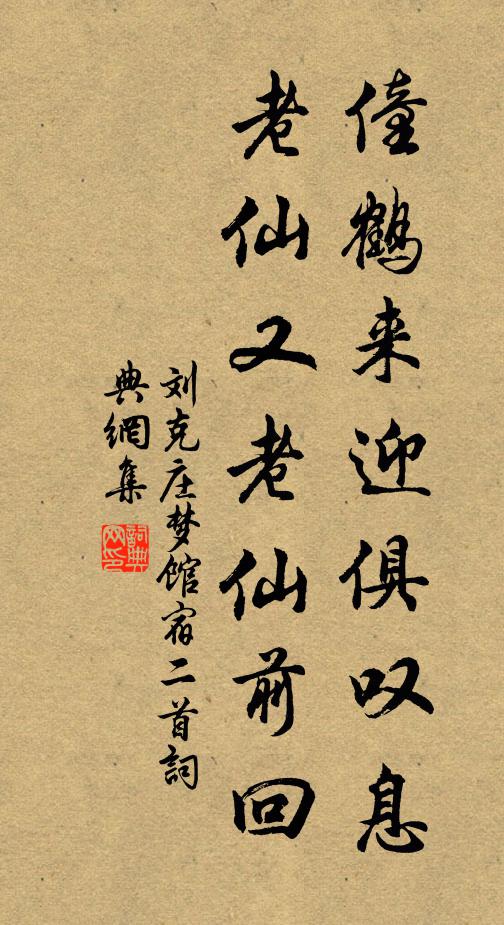 僮鹤来迎俱叹息
老仙又老仙前回
刘克庄梦馆宿二首词
典網集
詞典網印